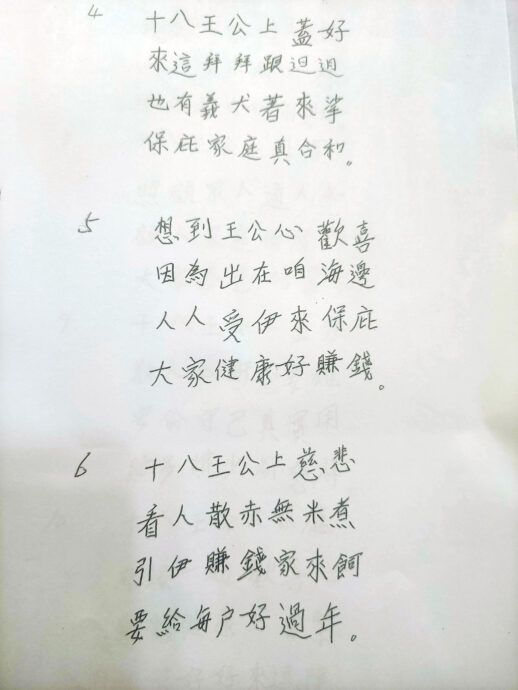 4 十八王公上蓋好
來這拜拜跟迌迌
也有義犬著來挲
保庇家庭真合和。
5 想到王公心歡喜
因為出在咱海邊
人人受伊來保庇
大家健康好賺錢。
6 十八王公上慈悲
看人散赤無米煮
引伊賺錢家來飼
要給每户好過年。